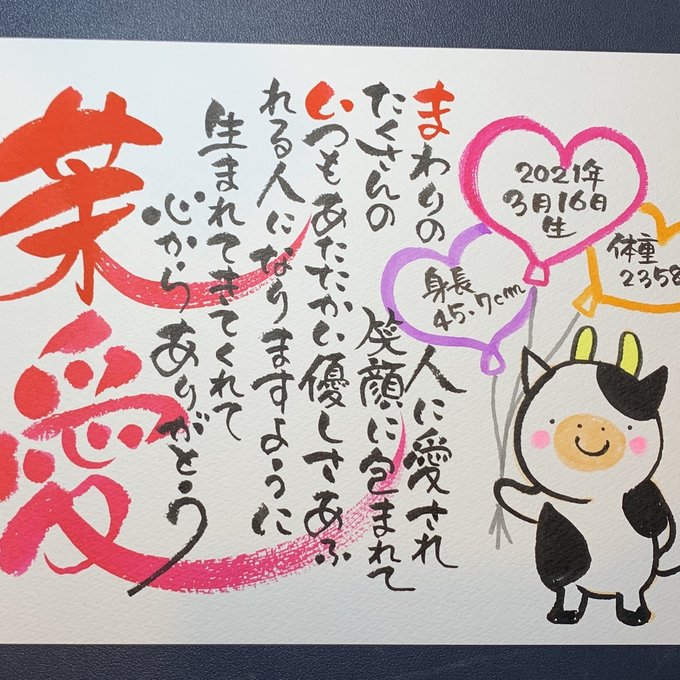 2021年
3月16日
生
体重
2358
身長
45.7cm
まわりの 人に愛され
たくさんの 笑顔に包まれて
いつもあたたかい優しさあふ
れる人になりますように
生まれてきてくれて
心からありがとう
茉愛